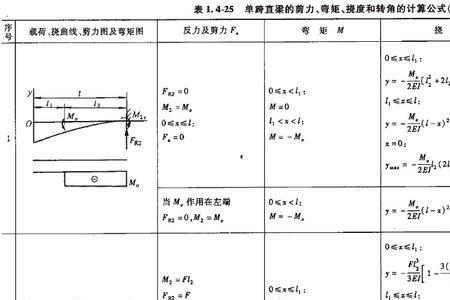 表 1.4-25 单跨直梁的剪力、弯矩、挠度和转角的计算公式(
序号
载荷、挠曲线、剪力图及弯矩图
反力及剪力 Fₛ
弯 矩 M
挠
1
y
l
l₁
l₂
O
Mₒ
M₂ₓ
F_R2
⊖
Mₒ
F_R2=0
M₂=Mₒ
0≤x≤l:
Fₛ=0
0≤x<l₁:
M=0
l₁<x<l:
M=−Mₒ
0≤x≤l₁:
y=−Mₒ/2EI[l₂²+2l₂
l₁≤x≤l:
y=−Mₒ/2EI(l−x)²
x=0:
y_max=−Mₒ/2EI l₂(2l
当 Mₒ 作用在左端
F_R2=0,M₂=Mₒ
0≤x<l:
M=−Mₒ
y=−Mₒ/2EI(l−x)²
M₂=Fl₂
F_R2=F
0≤x≤l₁:
0≤x≤l₁:
y=−Fl₂³/3EI[1−3(
l₁≤x≤l: